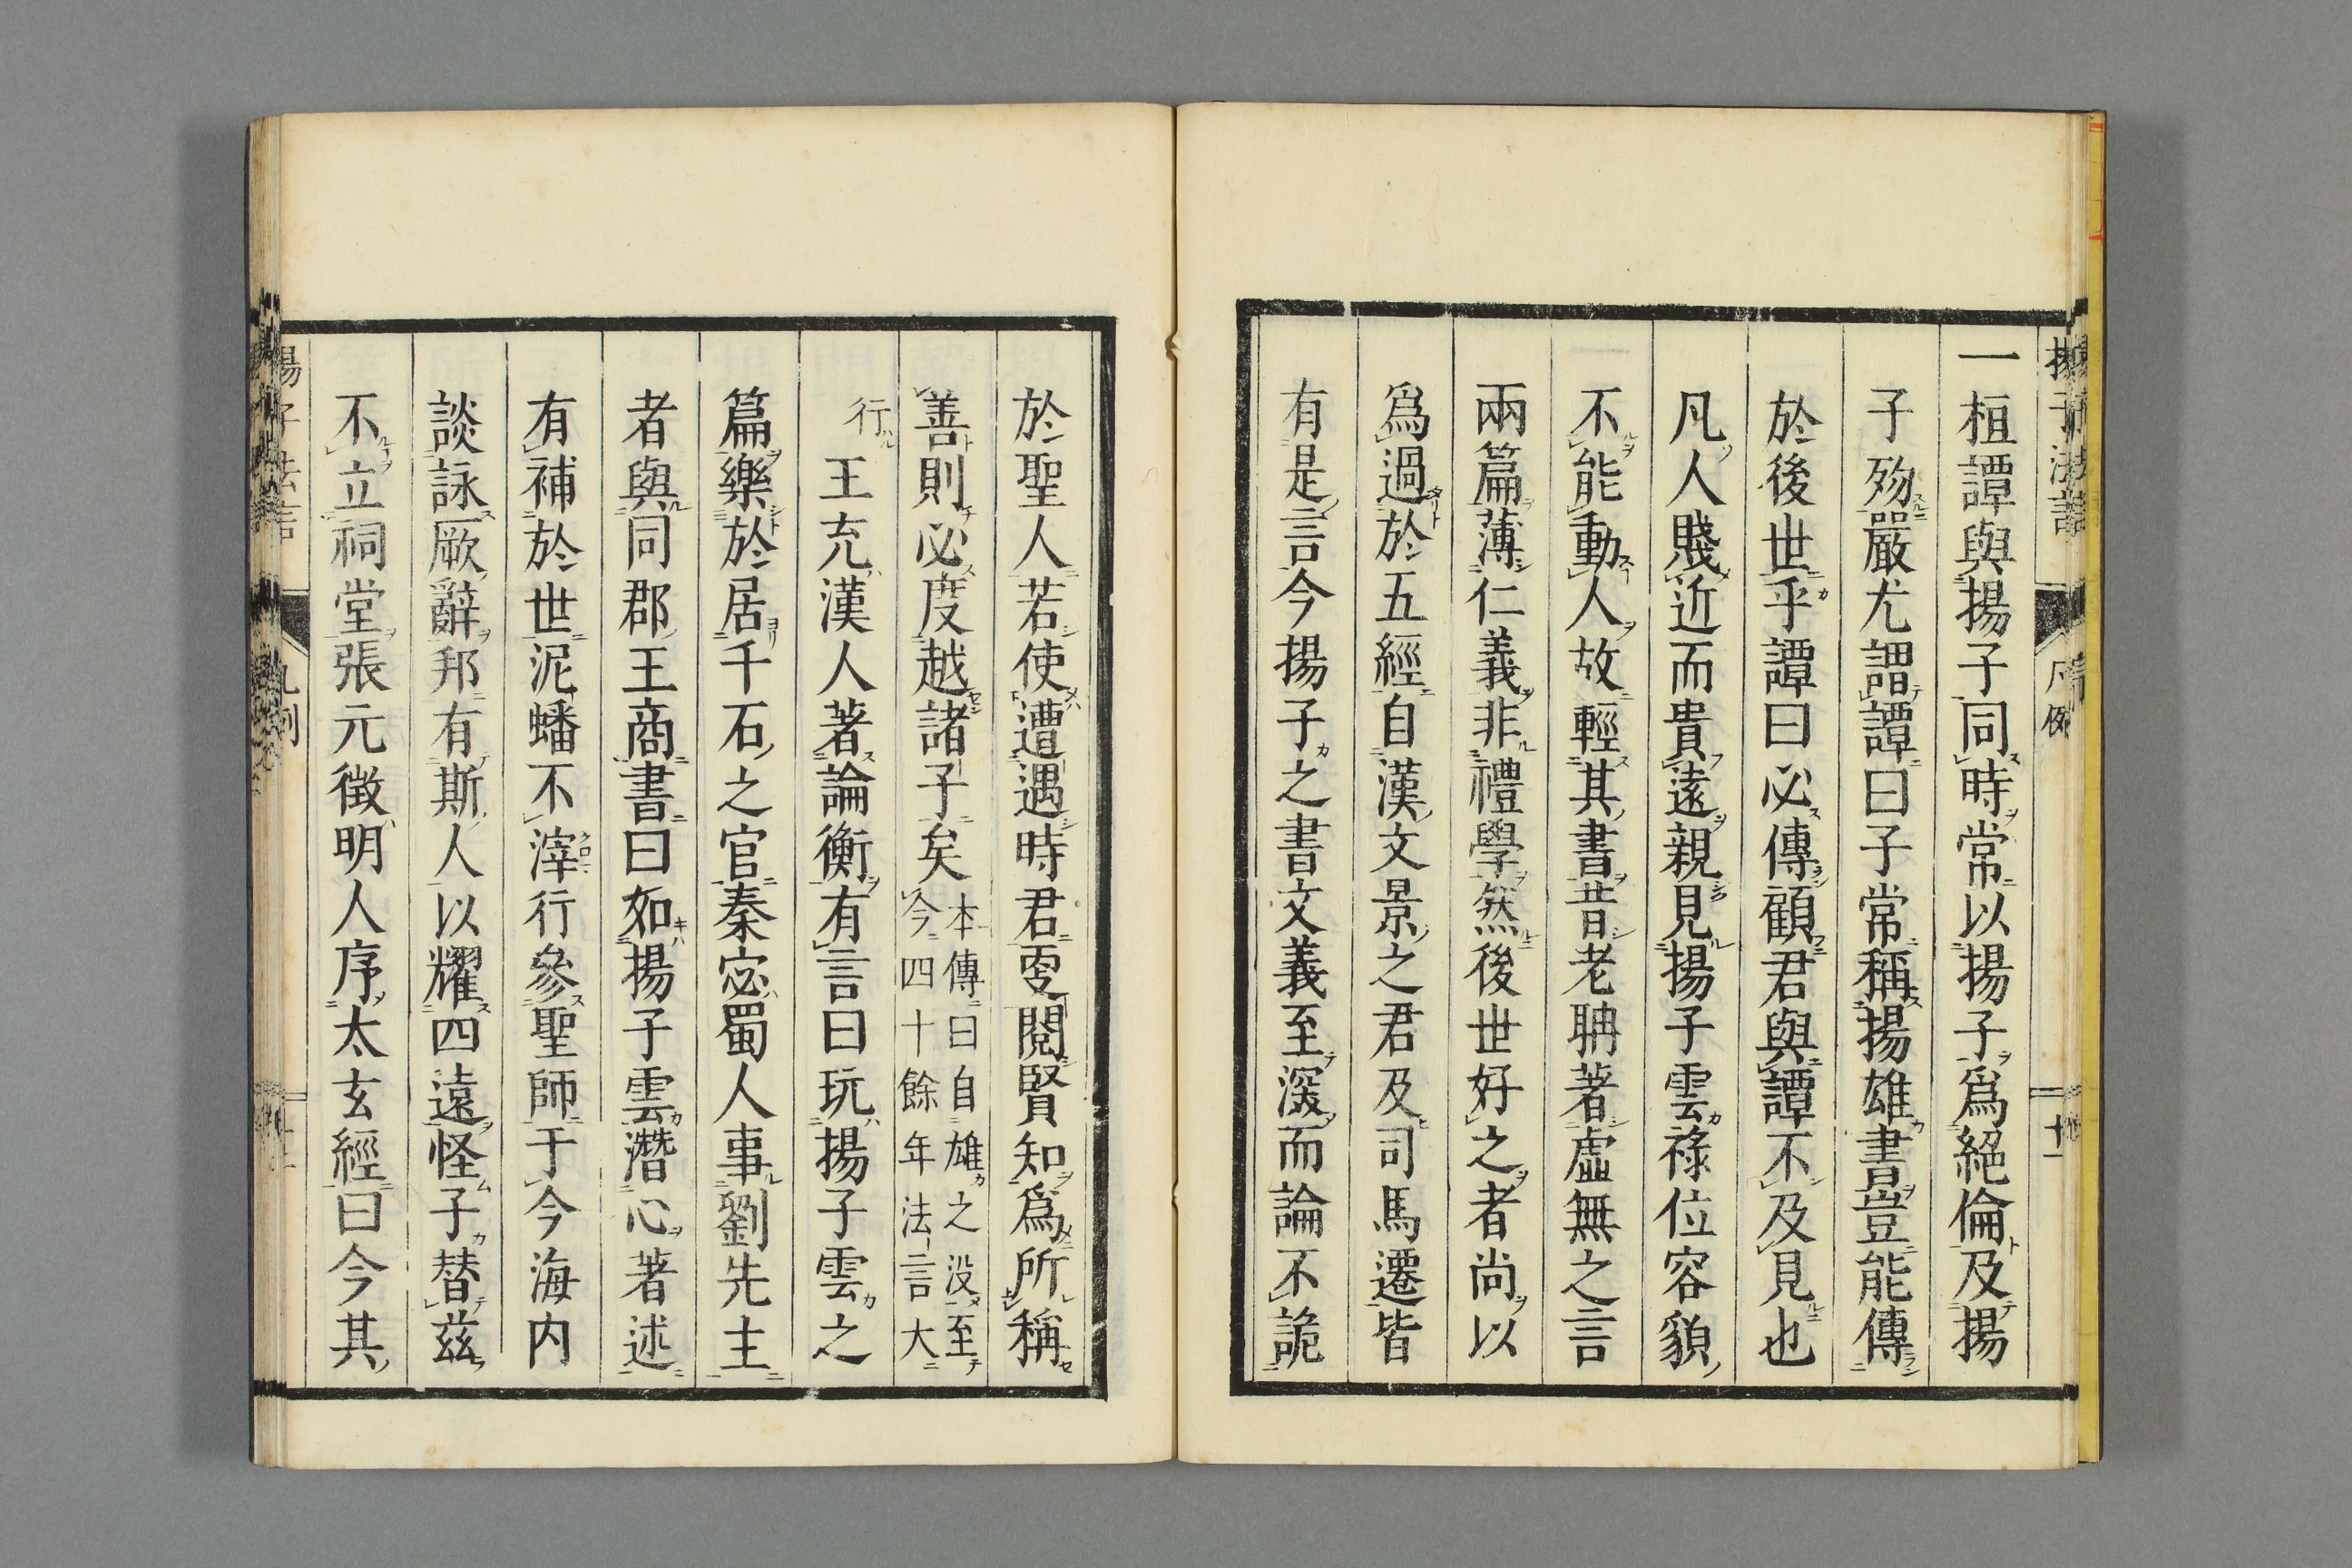 一桓譚與揚子同時常以揚子爲絕倫及揚
子歾嚴尤謂譚曰子常稱揚雄書豈能傳
於後世乎譚曰必傳顧君與譚不及見也
凡人賤近而貴遠親見揚子雲祿位容貌
不能動人故輕其書昔老聃著虛無之言
兩篇薄仁義非禮學然後世好之者尚以
爲過於五經自漢文景之君及司馬遷皆
有是言今揚子之書文義至深而論不詭
於聖人若使遭遇時君更閱賢知爲所稱
善則必度越諸子矣
本傳曰自雄之没至
今四十餘年法言大
行
王充漢人著論衡有言曰玩揚子雲之
篇樂於居千石之官秦宓蜀人事劉先主
者與同郡王商書曰如揚子雲潛心著述
有補於世泥蟠不滓行參聖師于今海内
談詠厥辭邦有斯人以耀四遠怪子替茲
不立祠堂張元徵明人序太玄經曰今其